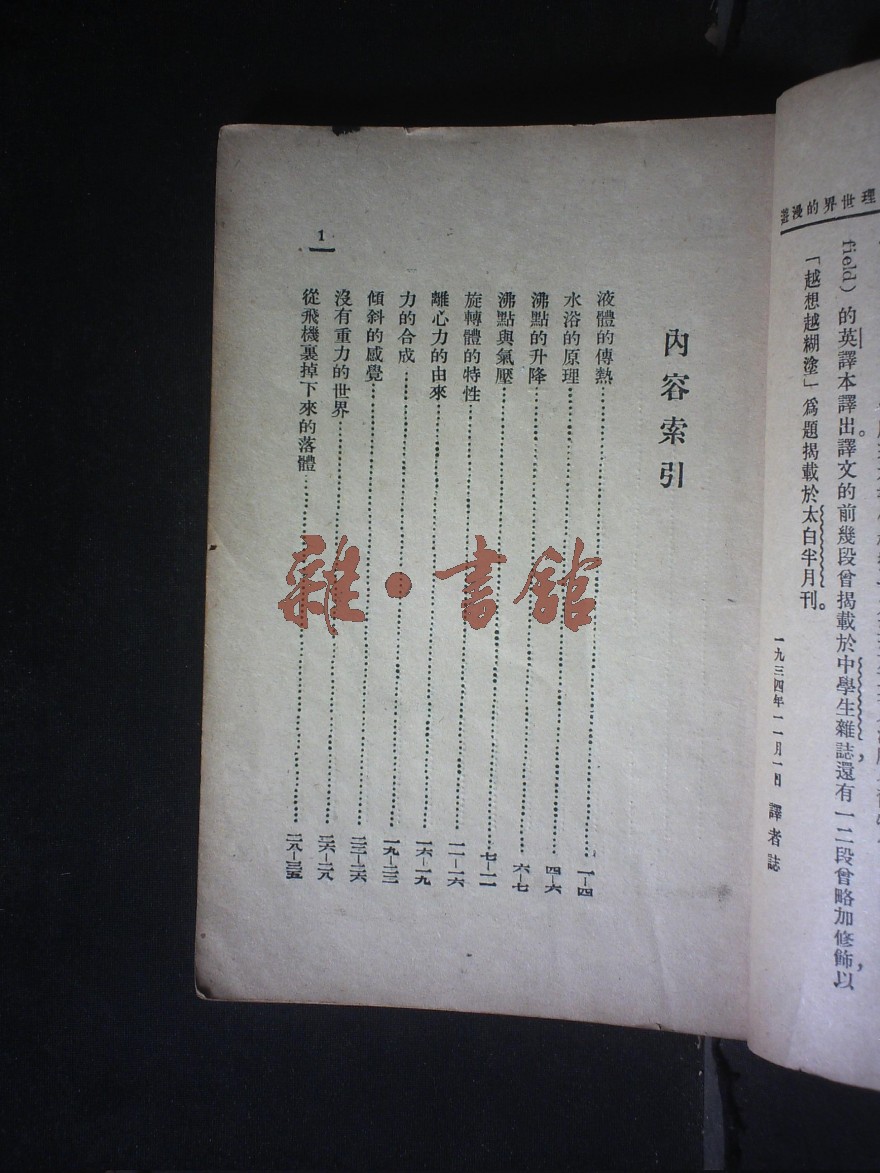 理世界的漫遊
field)的英譯本譯出。譯文的前幾段曾揭載於中學生雜誌,還有一二段曾略加修飾,以
「越想越糊塗」爲題揭載於太白半月刊。
一九三四年一一月一日 譯者誌
內容索引
液體的傳熱 一—四
水浴的原理 四—六
沸點的升降 六—七
沸點與氣壓 七—一一
旋轉體的特性 一一—一六
離心力的由來 一六—一九
力的合成 一九—二三
傾斜的感覺 二三—二六
沒有重力的世界 二六—二八
從飛機裏掉下來的落體 二八—三五
1
雜·書館